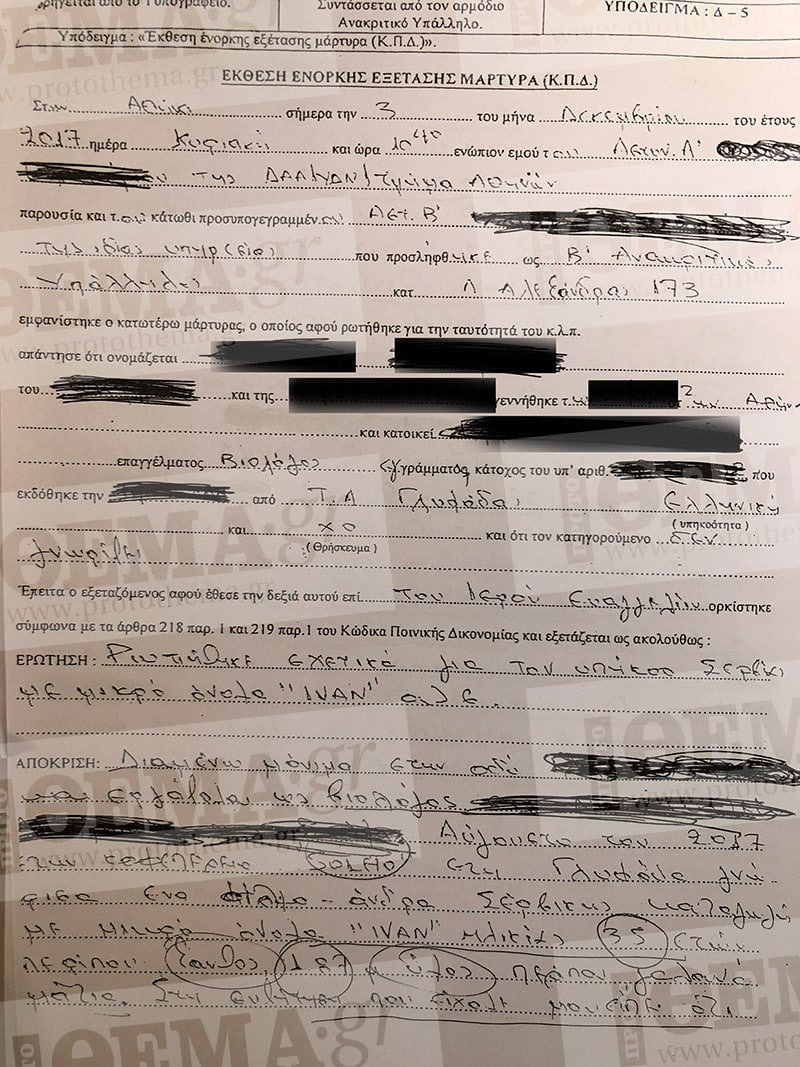 ρηγείται από το Τυπογραφείο.
Συντάσσεται από τον αρμόδιο
Ανακριτικό Υπάλληλο.
ΥΠΟΔΕΙΓΜΑ : Δ – 5
Υπόδειγμα : «Έκθεση ένορκης εξέτασης μάρτυρα (Κ.Π.Δ.)».
ΕΚΘΕΣΗ ΕΝΟΡΚΗΣ ΕΞΕΤΑΣΗΣ ΜΑΡΤΥΡΑ (Κ.Π.Δ.)
Στην Αθήνα σήμερα την 3 του μήνα Δεκεμβρίου του έτους
2017 ημέρα Κυριακή και ώρα 10 40 ενώπιον εμού τ ου Αστυν. Α'
της Αθηνών
παρουσία και τ.ου κάτωθι προσυπογεγραμμέν.ου Αστ. Β'
της ιδίας υπηρεσίας που προσλήφθηκε ως Β' Ανακριτικός
Υπάλληλος κατ Λ Αλεξάνδρας 173
εμφανίστηκε ο κατωτέρω μάρτυρας, ο οποίος αφού ρωτήθηκε για την ταυτότητά του κ.λ.π.
απάντησε ότι ονομάζεται
του και της γεννήθηκε τ.
και κατοικεί
επαγγέλματος Βιολόγος γράμματος, κάτοχος του υπ' αριθ. που
εκδόθηκε την από Τ.Α Γλυφάδας Ελληνική
( υπηκοότητα )
και Χ Ο και ότι τον κατηγορούμενο δεν
γνωρίζει
( Θρήσκευμα )
Έπειτα ο εξεταζόμενος αφού έθεσε την δεξιά αυτού επί του Ιερού Ευαγγελίου ορκίστηκε
σύμφωνα με τα άρθρα 218 παρ. 1 και 219 παρ.1 του Κώδικα Ποινικής Δικονομίας και εξετάζεται ως ακολούθως :
ΕΡΩΤΗΣΗ : Ρωτήθηκε σχετικά για τον υπήκοο Σερβίας
με μικρό όνομα "IVAN"
ΑΠΟΚΡΙΣΗ: Διαμένω μόνιμα στην οδό
και εργάζομαι ως βιολόγος
Αύγουστο του 2017
στην καφετέρια στη Γλυφάδα γνώ-
ρισα ένα άτομο - άνδρα Σέρβικης καταγωγής
με μικρό όνομα "IVAN" ηλικίας 35 ετών
περίπου ξανθος, 1 87 μ ύψος περίπου γαλανά
μάτια. Στη συζήτηση που είχαμε μου είπε ότι
www.protothema.gr
ΘΕΜΑ·gr